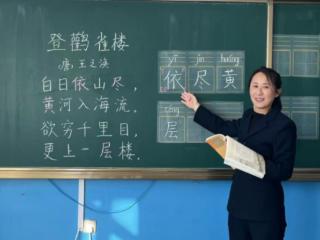 登鹳雀楼
唐，王之涣
白日依山尽，
黄河入海流。
欲穷千里目，
更上一层楼。
yī jìn huáng
依尽黄
céng
层